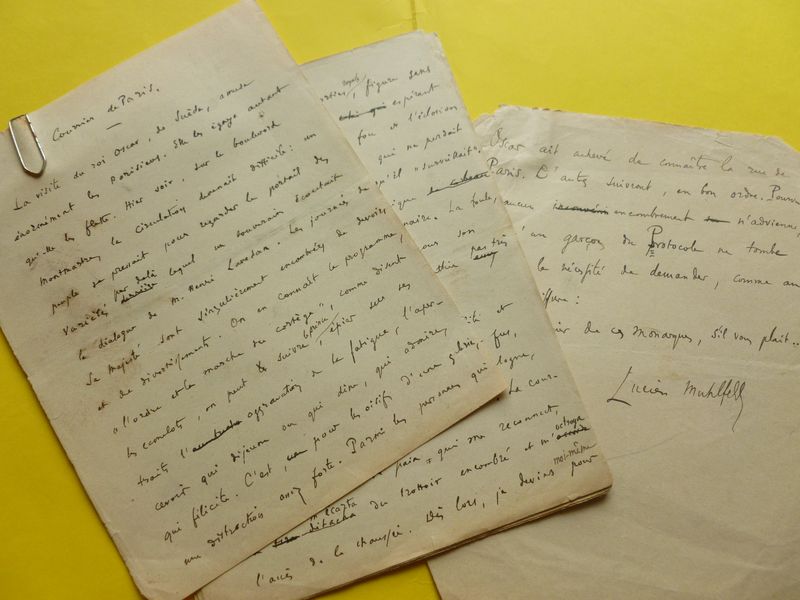 Courrier de Paris.
La visite du roi Oscar, de Suède, amuse
énormément les Parisiens. Elle les égaye autant
qu'elle les flatte. Hier soir, sur le boulevard
Montmartre, la circulation devenait difficile: un
peuple se pressait pour regarder le portail des
Variétés par delà lequel un souverain écoutait
le dialogue de M. Henri Lavedan. Les journées de
Sa Majesté sont singulièrement encombrées de devoirs
et de divertissements. On en connaît le programme,
"l'ordre et la marche du cortège", comme disent
les camelots, on peut suivre, épier sur ses
traits l'aggravation de la fatigue, l'aper-
cevoir qui déjeune ou qui dîne, qui admire,
qui félicite. C'est, pour les oisifs d'un
une distraction assez forte. Parmi les personnes qui
figure sans
qui espérant
fou et l'éclosion
qui ne perdait
qu'il "surveillait".
La foule,
son
et
fus,
logne,
La cour-
qui me reconnut,
m'écarta du trottoir encombré et m'octroya
moi-même
l'accès de la chaussée. Dès lors, je devins pour
Oscar ait achevé de connaître la rue de
Paris. D'autres suivront, en bon ordre. Pourvu
aucun encombrement n'advienne,
qu'un garçon du Protocole ne tombe
la nécessité de demander, comme au
:
de ces monarques, s'il vous plaît...
Lucien Muhlfeld